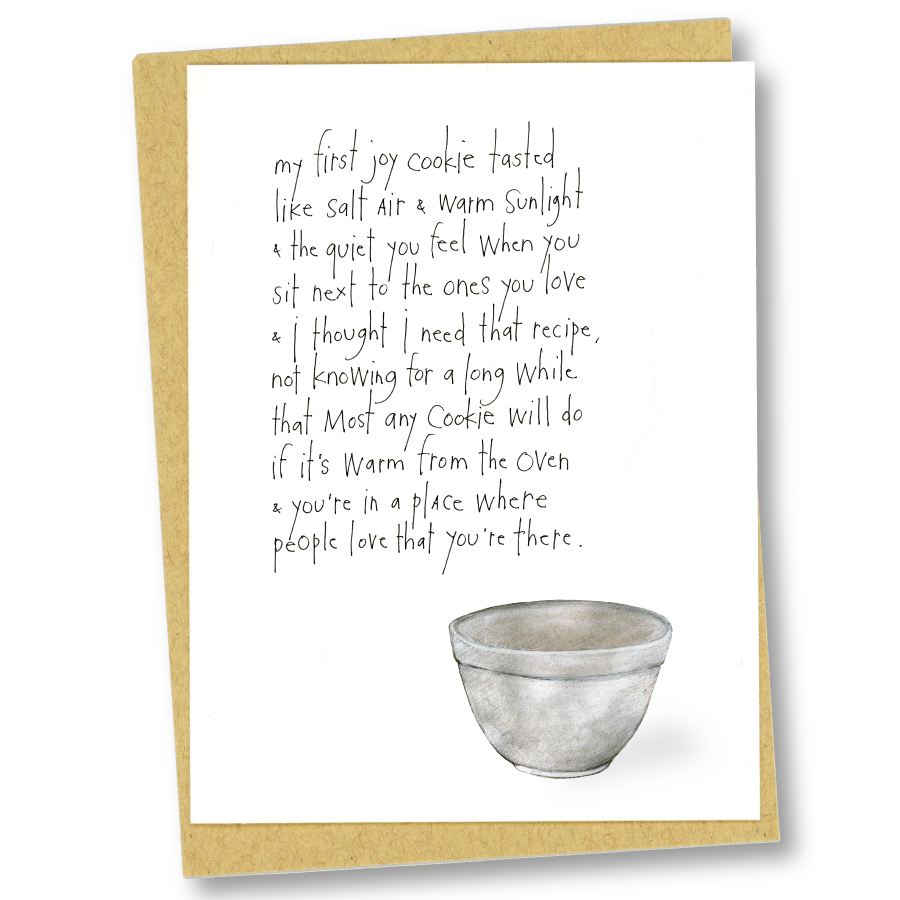 my first joy cookie tasted
like salt Air & warm Sunlight
& the quiet you feel when you
sit next to the ones you love
& i thought i need that recipe,
not knowing for a long while
that Most any Cookie will do
if it's warm from the oven
& you're in a place where
people love that you're there.